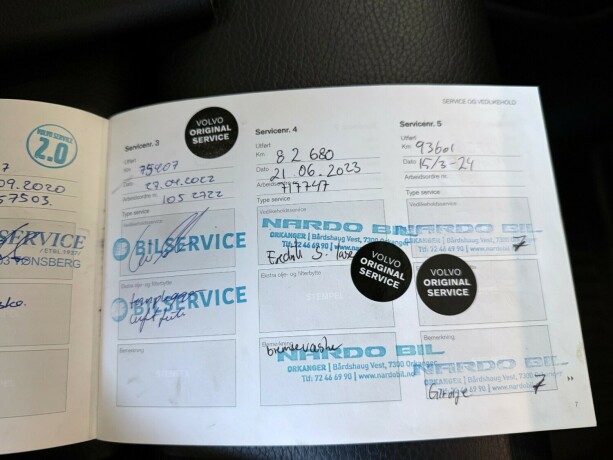 SERVICE OG VEDLIKEHOLD
2.0
09.2020
57503.
SERVICE
TØNSBERG
Servicenr. 3
VOLVO
ORIGINAL
SERVICE
Utført
Km 75407
Dato 27.04.2022
Arbeidsordre nr. 105 2722
Type service
Vedlikeholdsservice
BILSERVICE
Ekstra olje- og filterbytte
BILSERVICE
luftfilter
Bemerkning
Servicenr. 4
Utført
Km 82 680
Dato 21.06.2023
Arbeidsordre nr. 717747
Type service
Vedlikeholdsservice
NARDO BIL
ORKANGER | Bårdshaug Vest, 7300 Orkanger
Tlf: 72 46 69 90 | www.nardobil.no
VOLVO
ORIGINAL
SERVICE
Ekstra olje- og filterbytte
STEMPEL
Bemerkning
bremsevæske
NARDO BIL
ORKANGER | Bårdshaug Vest, 7300 Orkanger
Tlf: 72 46 69 90 | www.nardobil.no
Servicenr. 5
Utført
Km 93601
Dato 15/3-24
Arbeidsordre nr.
Type service
Vedlikeholdsservice
NARDO BIL
ORKANGER | Bårdshaug Vest, 7300 Orkanger
Tlf: 72 46 69 90 | www.nardobil.no
VOLVO
ORIGINAL
SERVICE
Bemerkning
NARDO BIL
Bårdshaug Vest, 7300 Orkanger
7